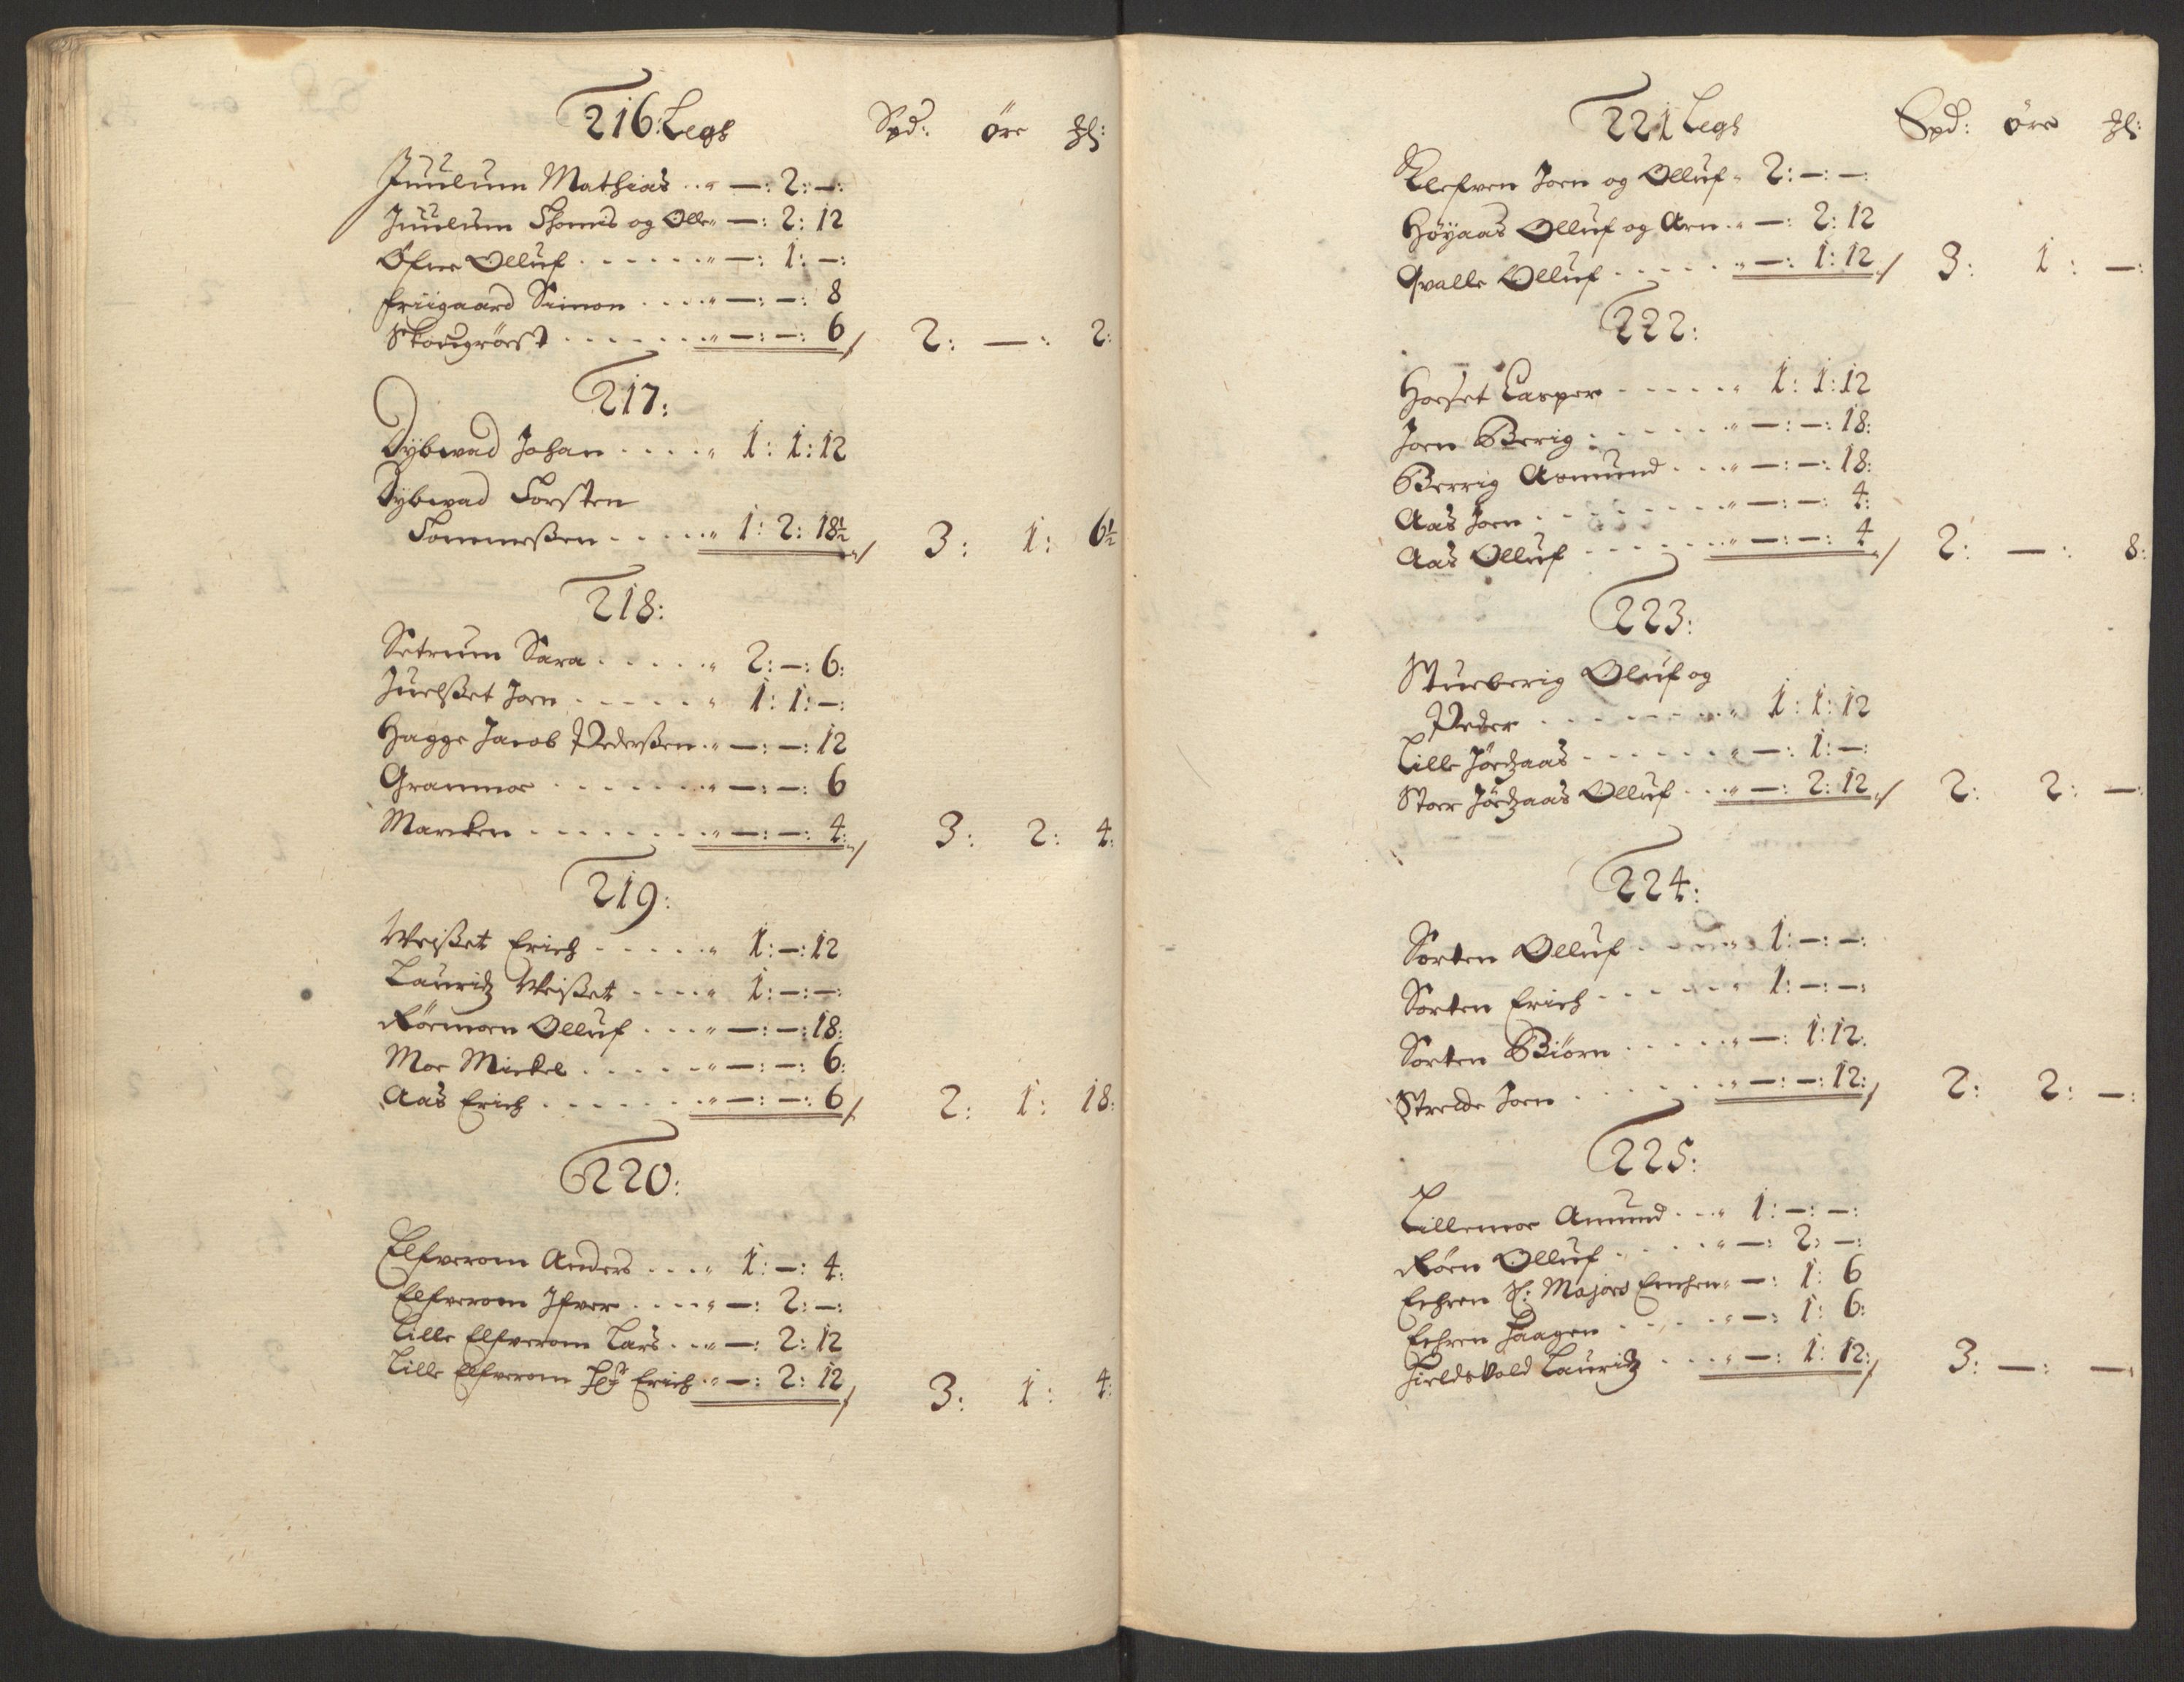 216: Legh Spd: öre
Juulum Mathias .. " —: 2: —:
Juulum Thomes og Olle " —: 2: 12
Öfree Olluf . . . . . . " —: 1: —:
Friigaard Simon . . . . " —: —: 8
Skougrörst . . . . . . " —: —: 6 / 2: —: 2:
217:
Dybwad Johan . . . . " 1: 1: 12
Dybwad Torsten
Tommesßen . . . . " 1: 2: 18½ / 3: 1: 6½
218:
Setrum Sara . . . . . " 2: —: 6:
Juelßet Joen . . . . . " 1: 1: —:
Hagge Jacob Pederßen . " —: —: 12
Grammoe . . . . . . . " —: —: 6
Marcken . . . . . . . " —: —: 4: / 3: 2: 4:
219:
Weißet Erich . . . . . " 1: —: 12
Lauridz Weißet . . . . " 1: —: —:
Rörmoen Olluf . . . " —: —: 18:
Moe Mickel . . . . . " —: —: 6:
Aas Erich . . . . . . " —: —: 6 / 2: 1: 18:
220:
Elfverom Anders . . . . " 1: —: 4:
Elfverom Ifver . . . . " —: 2: —:
Lille Elfverom Lars . . " —: 2: 12
Lille Elfverom Erich . " —: 2: 12 / 3: 1: 4:
221 Legh Spd: öre
Klefven Joen og Olluf " 2: —: —:
Höyaas Olluf og Arn . " —: 2: 12
Qvalle Olluf . . . . . " —: 1: 12 / 3: 1: —:
222:
Hoeset Casper . . . . . " 1: 1: 12
Joen Berig . . . . . . " —: —: 18:
Berrig Asmund . . . " —: —: 18:
Aas Joen . . . . . . . " —: —: 4:
Aas Olluf . . . . . . " —: —: 4 / 2: —: 8:
223:
Stueberig Oluf og
Peder . . . . . . . . " 1: 1: 12
Lille Jördzaas . . . . . " —: 1: —:
Stoer Jördzaas Olluf . . " —: 2: 12 / 2: 2: —:
224:
Sorten Olluf . . . . " 1: —: —:
Sorten Erich . . . . . " 1: —: —:
Sorten Biörn . . . . . " —: 1: 12.
Stredde Joen . . . . . " —: —: 12: / 2: 2: —:
225:
Lillemoe Amund . . . " 1: —: —:
Röen Olluf . . . . . " —: 2: —:
Echren Majors " —: 1: 6
Echren Haagen . . . . " —: 1: 6:
Hieldsvold Lauridz . . . " —: 1: 12: / 3: —: —: